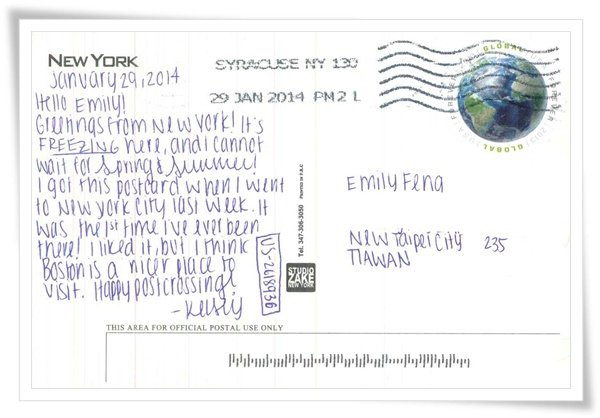 NEW YORK
January 29, 2014
Hello Emily!
Greetings from New York! It's
FREEZING here, and I cannot
wait for Spring & Summer!
I got this postcard when I went
to New York City last week. It
was the 1st time I've ever been
there! I liked it, but I think
Boston is a nicer place to
visit. Happy postcrossing!
-Kelsey
US-2618936
SYRACUSE NY 130
29 JAN 2014 PM 2 L
GLOBAL
FOREVER
GLOBAL
Emily Feng
New Taipei City 235
TIAWAN
Tel. 347-306-3050 PRINTED IN P.R.C
STUDIO
ZAKE
NEW YORK
THIS AREA FOR OFFICIAL POSTAL USE ONLY